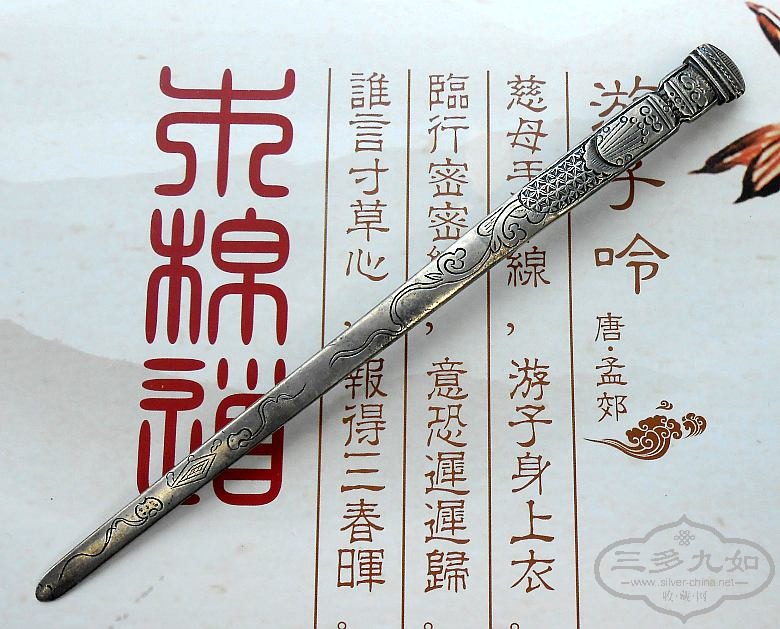 游子吟
唐·孟郊
慈母手線，游子身上衣。
臨行密密，意恐遲遲歸。
誰言寸草心，報得三春暉。
木棉道
三多九如
www.silver-china.net
收·藏·网